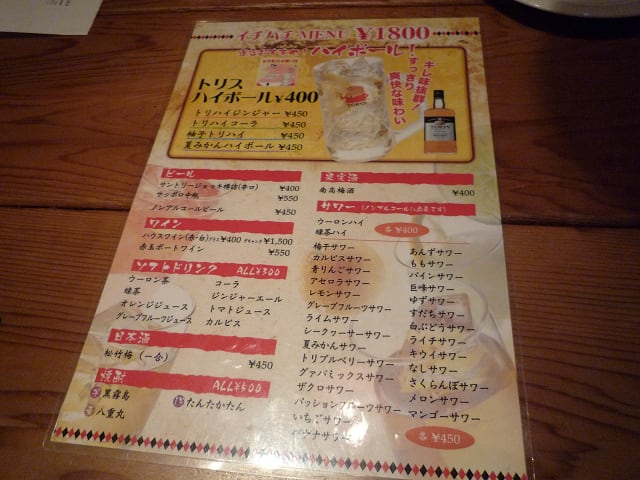 イチハチ MENU ¥1800
ハイボール!
キレ味抜群!
すっきり
爽快な味わい
トリス
ハイボール¥400
トリハイジンジャー ¥450
トリハイコーラ ¥450
柚子トリハイ ¥450
夏みかんハイボール ¥450
TORYS
ビール
サントリージョッキ樽詰(辛口) ¥400
サッポロ中瓶 ¥550
ノンアルコールビール ¥450
ワイン
ハウスワイン(赤・白)グラス¥400 デキャンタ¥1,500
赤玉ポートワイン ¥550
ソフトドリンク ALL¥300
ウーロン茶
緑茶
オレンジジュース
グレープフルーツジュース
コーラ
ジンジャーエール
トマトジュース
カルピス
日本酒
松竹梅(一合) ¥450
焼酎 ALL¥500
芋 黒霧島
芋 八重丸
たんたかたん
果実酒
南高梅酒 ¥400
サワー (ノンアルコールに出来ます)
ウーロンハイ
緑茶ハイ
各¥400
梅干サワー
カルピスサワー
青りんごサワー
アセロラサワー
レモンサワー
グレープフルーツサワー
ライムサワー
シークヮーサーサワー
夏みかんサワー
トリプルベリーサワー
グァバミックスサワー
ザクロサワー
パッションフルーツサワー
いちごサワー
バナナサワー
あんずサワー
ももサワー
パインサワー
巨峰サワー
ゆずサワー
すだちサワー
白ぶどうサワー
ライチサワー
キウイサワー
なしサワー
さくらんぼサワー
メロンサワー
マンゴーサワー
各¥450